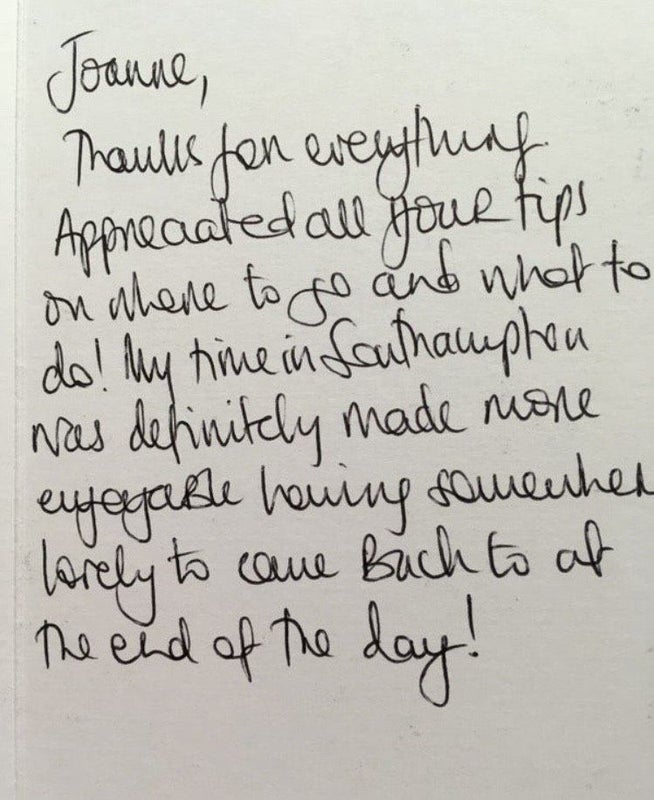 Joanne,
Thanks for everything.
Appreciated all your tips
on where to go and what to
do! My time in Southampton
was definitely made more
enjoyable having somewher
lovely to come Back to at
the end of the day!